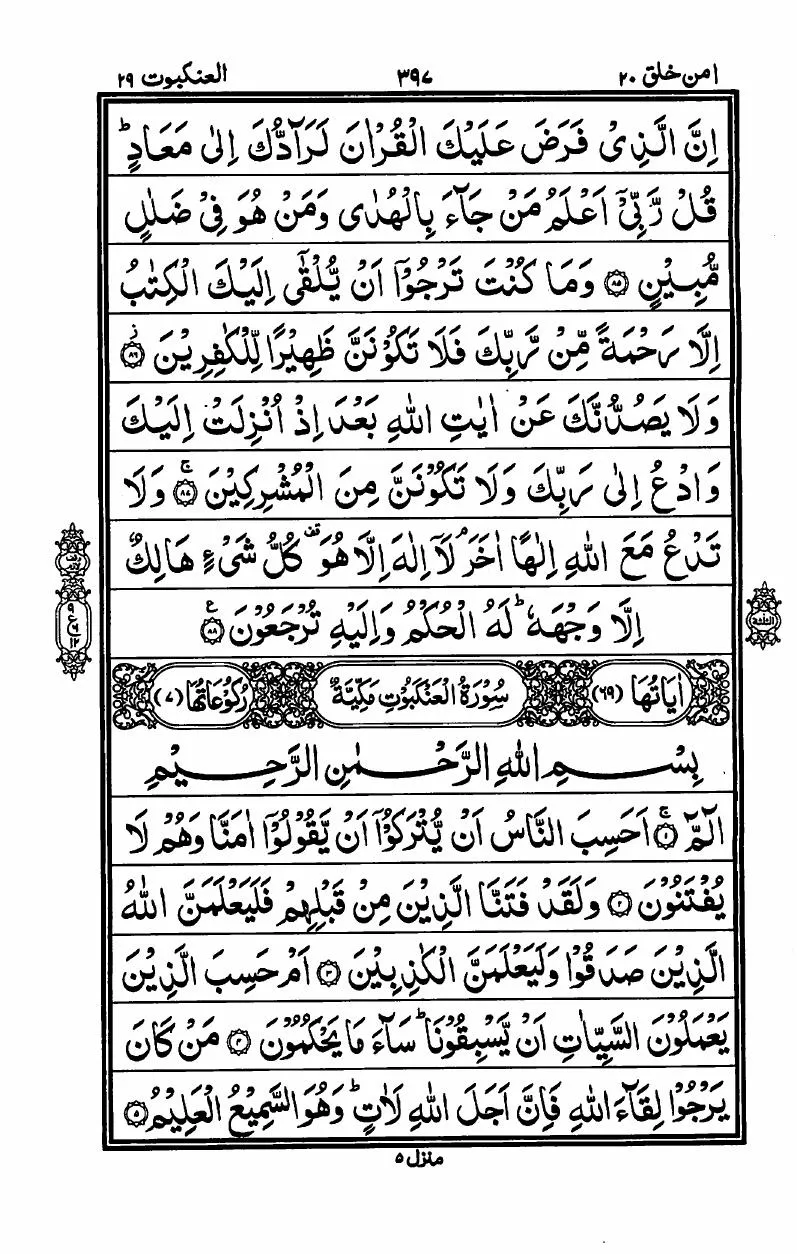 امن خلق ۲۰ ۳۹۷ العنكبوت ۲۹
اِنَّ الَّذِىْ فَرَضَ عَلَيْكَ الْقُرْاٰنَ لَرَآدُّكَ اِلٰى مَعَادٍ ؕ
قُلْ رَّبِّىْۤ اَعْلَمُ مَنْ جَآءَ بِالْهُدٰى وَمَنْ هُوَ فِىْ ضَلٰلٍ
مُّبِيْنٍ ۸۵ وَمَا كُنْتَ تَرْجُوْۤا اَنْ يُّلْقٰٓى اِلَيْكَ الْكِتٰبُ
اِلَّا رَحْمَةً مِّنْ رَّبِّكَ فَلَا تَكُوْنَنَّ ظَهِيْرًا لِّلْكٰفِرِيْنَ ۸۶ ز
وَلَا يَصُدُّنَّكَ عَنْ اٰيٰتِ اللّٰهِ بَعْدَ اِذْ اُنْزِلَتْ اِلَيْكَ
وَادْعُ اِلٰى رَبِّكَ وَلَا تَكُوْنَنَّ مِنَ الْمُشْرِكِيْنَ ۸۷ ۚ وَلَا
تَدْعُ مَعَ اللّٰهِ اِلٰهًا اٰخَرَ ۘ لَاۤ اِلٰهَ اِلَّا هُوَ قف كُلُّ شَىْءٍ هَالِكٌ
اِلَّا وَجْهَهٗ ؕ لَهُ الْحُكْمُ وَاِلَيْهِ تُرْجَعُوْنَ ۸۸ ع
وقف لازم
۹
ع ۶
۱۲
الثلثة
اٰيَاتُهَا (۶۹) سُوْرَةُ الْعَنْكَبُوْتِ مَكِّيَّةٌ رُكُوْعَاتُهَا (۷)
بِسْمِ اللّٰهِ الرَّحْمٰنِ الرَّحِيْمِ
الٓمّٓ ۱ ۚ اَحَسِبَ النَّاسُ اَنْ يُّتْرَكُوْۤا اَنْ يَّقُوْلُوْۤا اٰمَنَّا وَهُمْ لَا
يُفْتَنُوْنَ ۲ وَلَقَدْ فَتَنَّا الَّذِيْنَ مِنْ قَبْلِهِمْ فَلَيَعْلَمَنَّ اللّٰهُ
الَّذِيْنَ صَدَقُوْا وَلَيَعْلَمَنَّ الْكٰذِبِيْنَ ۳ اَمْ حَسِبَ الَّذِيْنَ
يَعْمَلُوْنَ السَّيِّاٰتِ اَنْ يَّسْبِقُوْنَا ؕ سَآءَ مَا يَحْكُمُوْنَ ۴ مَنْ كَانَ
يَرْجُوْا لِقَآءَ اللّٰهِ فَاِنَّ اَجَلَ اللّٰهِ لَاٰتٍ ؕ وَهُوَ السَّمِيْعُ الْعَلِيْمُ ۵
منزل ۵